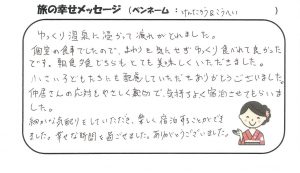 旅の幸せメッセージ (ペンネーム：けんたろう&こうへい)
ゆっくり温泉に浸かって疲れがとれました。
個室の食事でしたので、まわりを気にせずゆっくり食べれて良かった
です。朝食夕食どちらもとても美味しくいただきました。
小さい子どもたちにも配慮していただきありがとうございました。
仲居さんの応対もやさしく親切で、気持ちよく宿泊させてもらいま
した。
細かな気配りをしていただき、楽しく宿泊することができ
ました。幸せな時間を過ごせました。ありがとうございました。